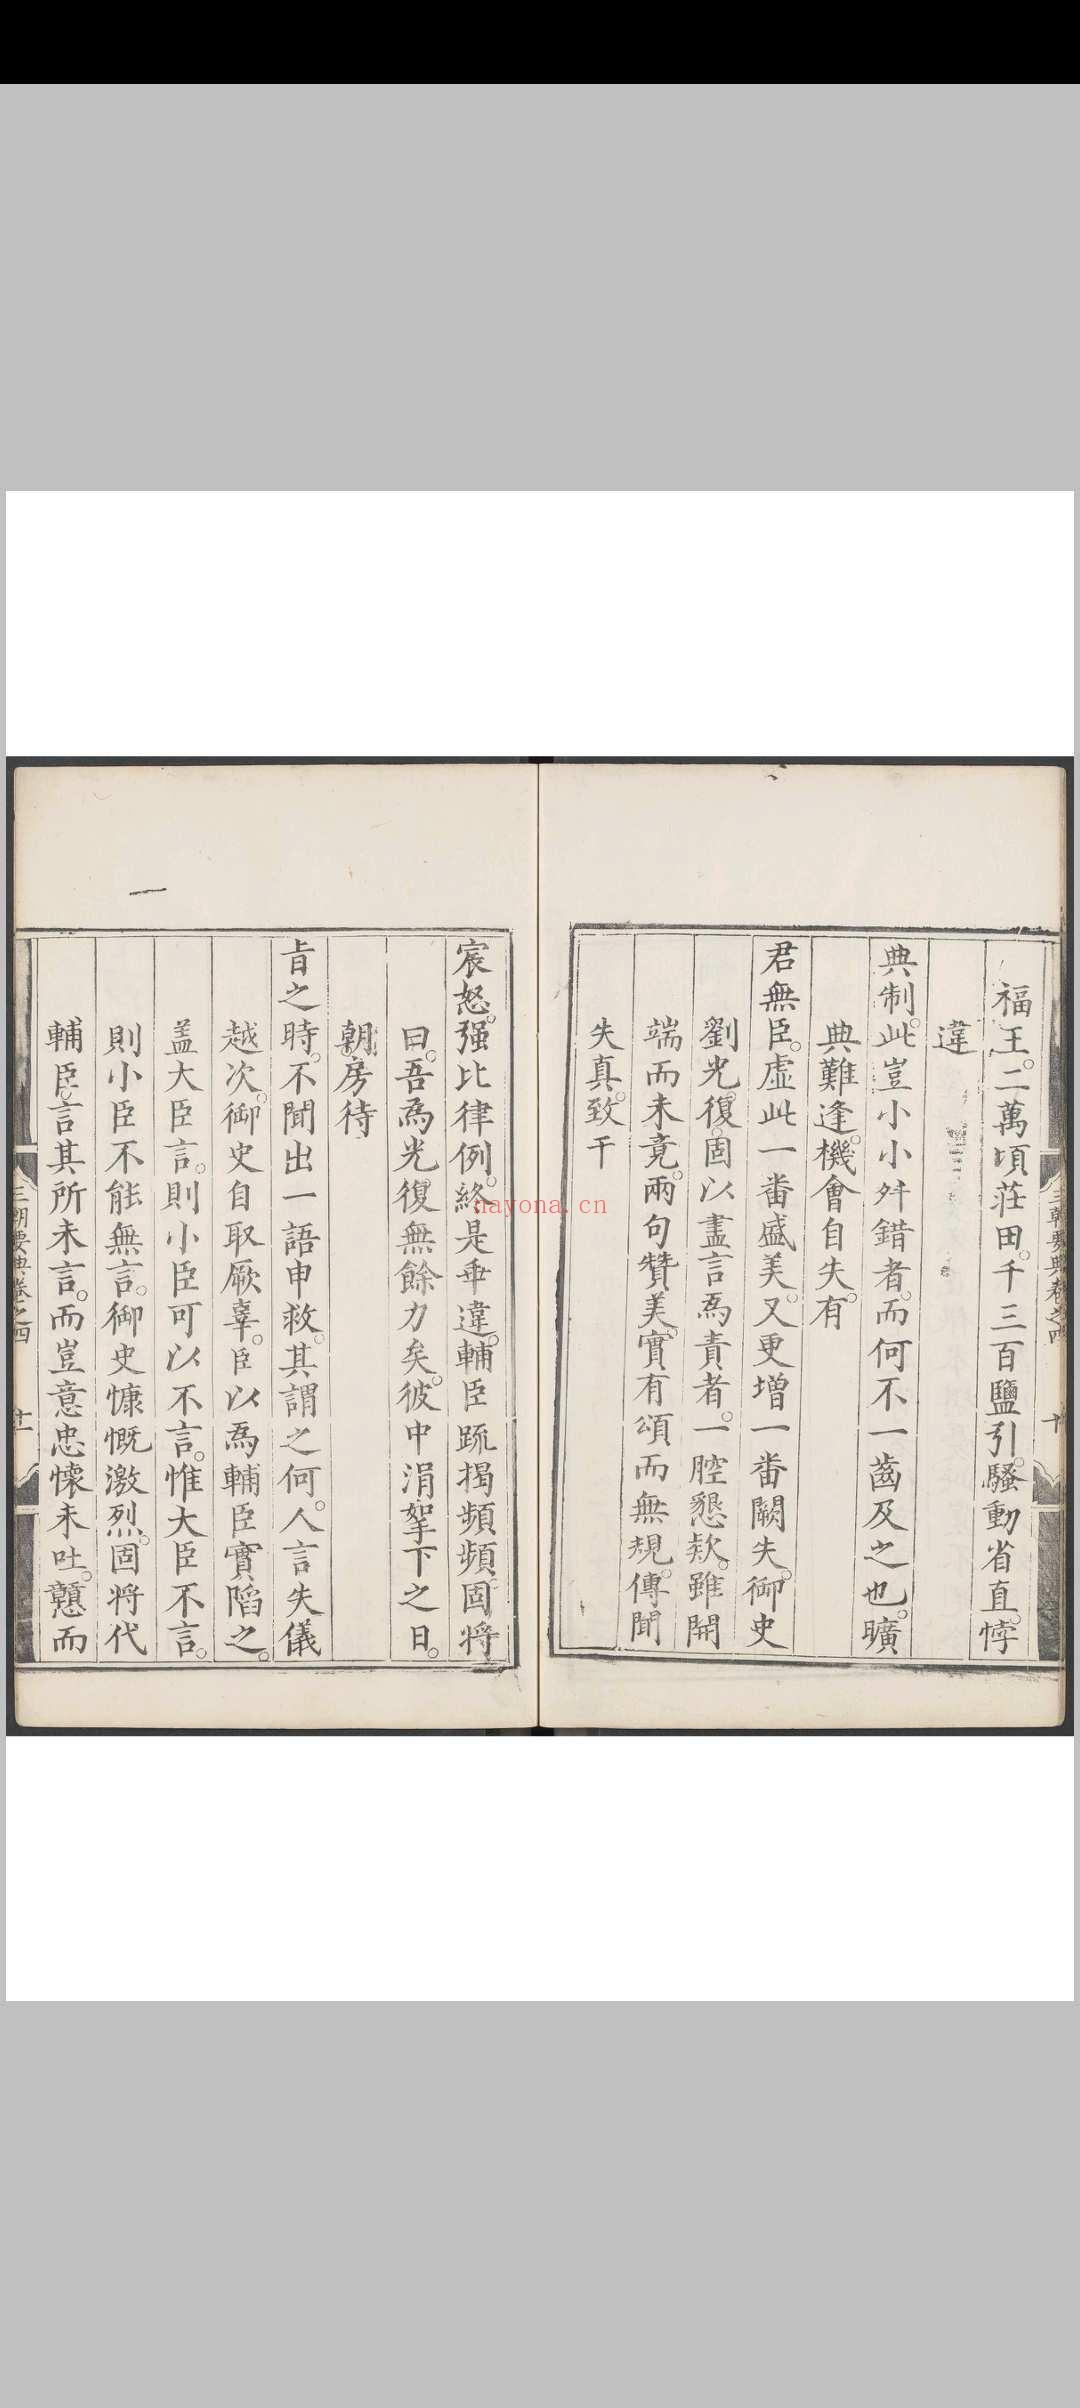 三朝要典卷之四 十
福王。二萬頃莊田。千三百鹽引。騷動省直。悖
違
典制。此豈小小舛錯者。而何不一齒及之也。曠
典難逢。機會自失。有
君無臣。虛此一番盛美。又更增一番闕失。御史
劉光復。固以盡言為責者。一腔懇欵。雖開
端而未竟。兩句贊美。實有頌而無規。傳聞
失真。致干
宸怒。强比律例。終是乖違。輔臣疏揭頻頻。固將
曰。吾為光復無餘力矣。彼中涓拏下之日。
朝房待
旨之時。不聞出一語申救。其謂之何。人言失儀
越次。御史自取厥辜。臣以為輔臣實陷之。
盖大臣言。則小臣可以不言。惟大臣不言。
則小臣不能無言。御史慷慨激烈。固將代
輔臣言其所未言。而豈意忠懷未吐。戇而
三朝要典卷之四 十一
nayona.cn